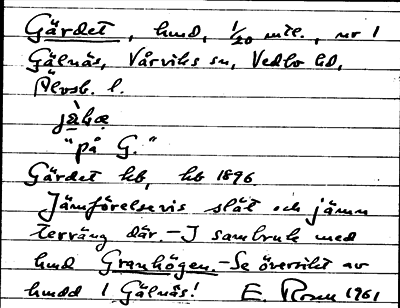 Gärdet, hmd, 1/20 mtl., nr 1
Gälnäs, Vårviks sn, Vedbo hd,
Älvsb. l.
"på G."
Gärdet hb, hb 1896
Jämförelsevis slät och jämn
terräng där. – I sambruk med
hmd Granhögen. – Se översikt av
hmdd i Gälnäs! E. Rosen 1961